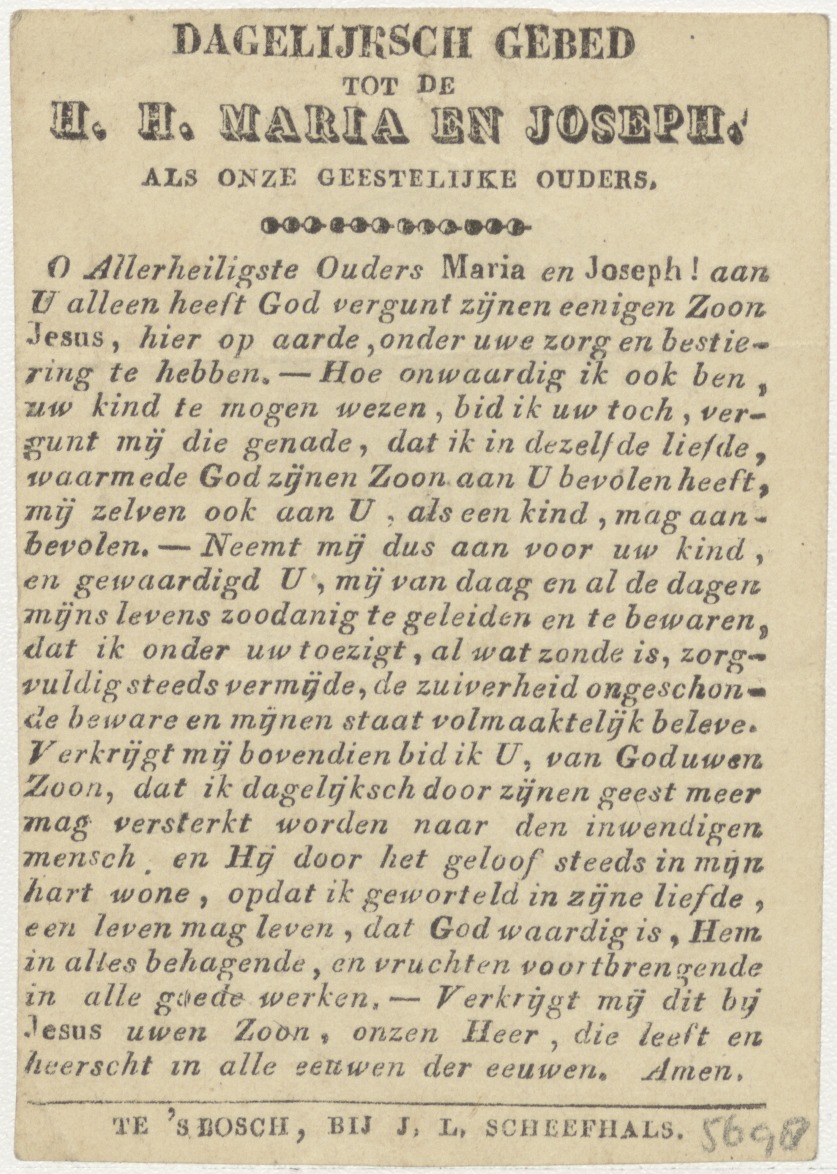 DAGELIJKSCH GEBED
TOT DE
H. H. MARIA EN JOSEPH.
ALS ONZE GEESTELIJKE OUDERS.
O Allerheiligste Ouders Maria en Joseph! aan
U alleen heeft God vergunt zijnen eenigen Zoon
Jesus, hier op aarde, onder uwe zorg en bestie-
ring te hebben. — Hoe onwaardig ik ook ben,
uw kind te mogen wezen, bid ik uw toch, ver-
gunt mij die genade, dat ik in dezelfde liefde,
waarmede God zijnen Zoon aan U bevolen heeft,
mij zelven ook aan U, als een kind, mag aan-
bevolen. — Neemt mij dus aan voor uw kind,
en gewaardigd U, mij van daag en al de dagen
mijns levens zoodanig te geleiden en te bewaren,
dat ik onder uw toezigt, al wat zonde is, zorg-
vuldig steeds vermijde, de zuiverheid ongeschon-
de beware en mijnen staat volmaaktelijk beleve.
Verkrijgt mij bovendien bid ik U, van God uwen
Zoon, dat ik dagelijksch door zijnen geest meer
mag versterkt worden naar den inwendigen
mensch, en Hij door het geloof steeds in mijn
hart wone, opdat ik geworteld in zijne liefde,
een leven mag leven, dat God waardig is, Hem
in alles behagende, en vruchten voortbrengende
in alle goede werken. — Verkrijgt mij dit bij
Jesus uwen Zoon, onzen Heer, die leeft en
heerscht in alle eeuwen der eeuwen. Amen.
TE 'SBOSCH, BIJ J. L. SCHEEFHALS. 5698